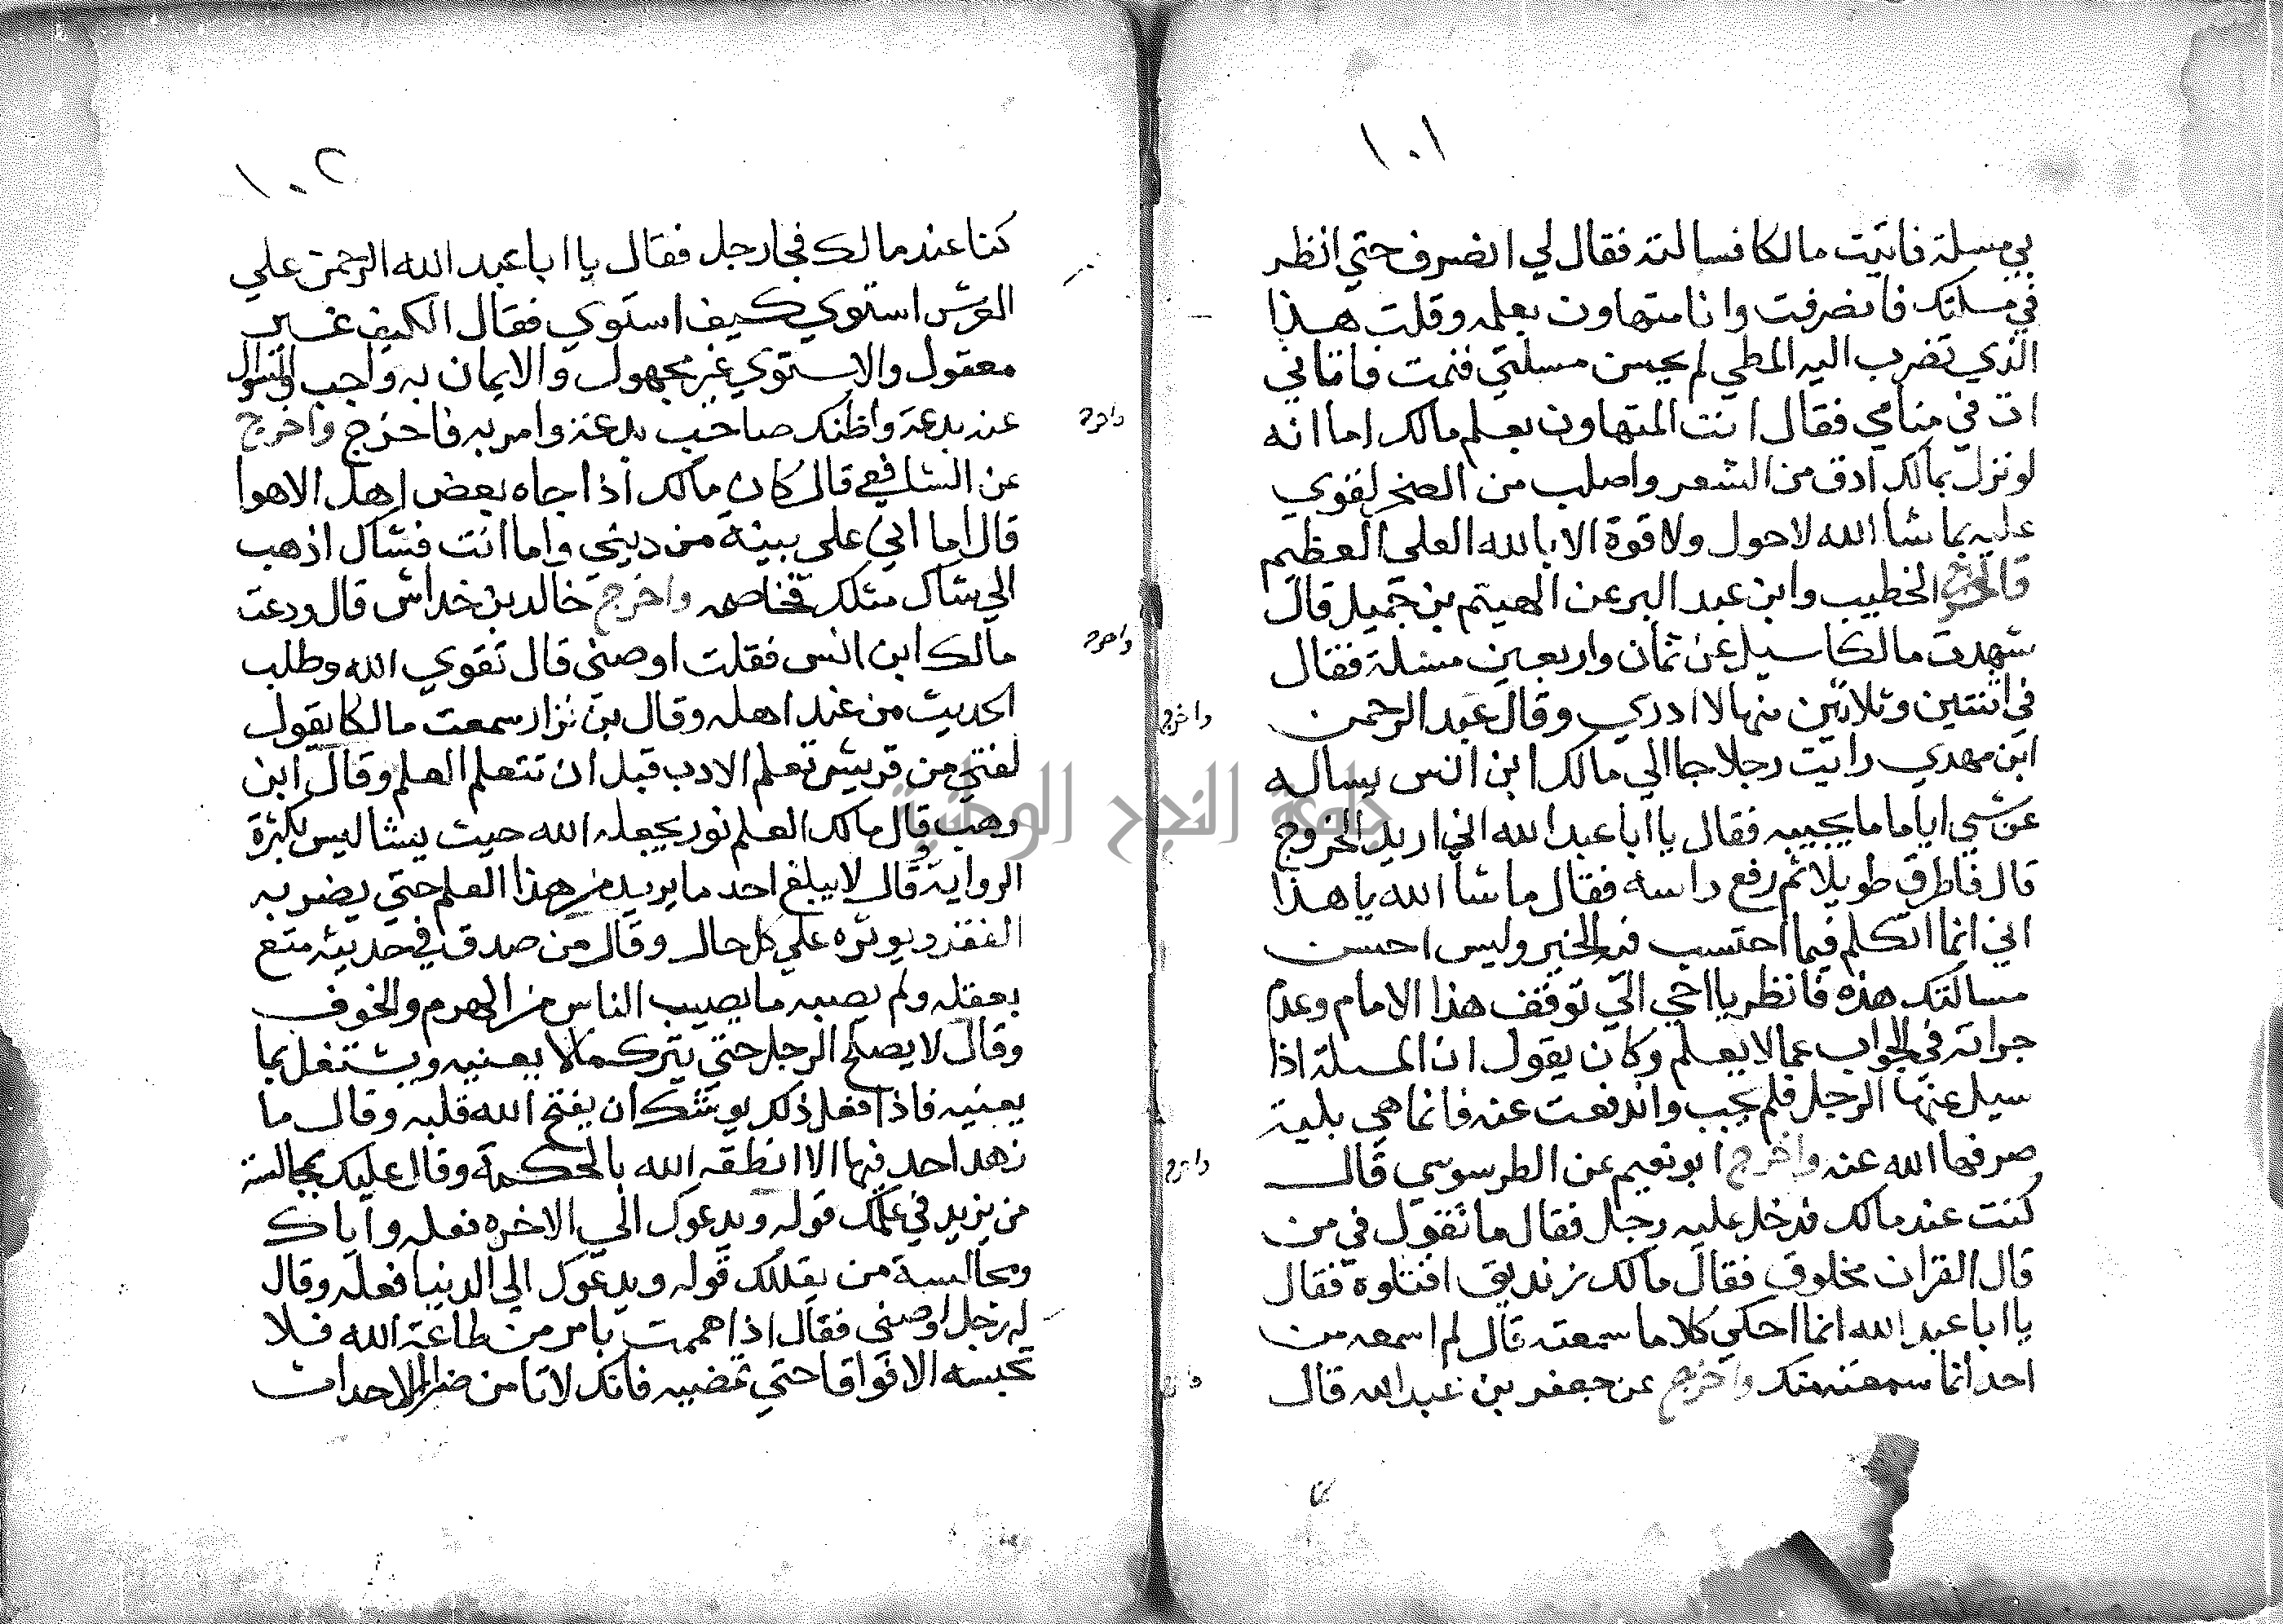 ١٠١
بي مسلة فاتيت مالكا فسالته فقال لي انصرف حتي انظر
في مسلتك فانصرفت وانا متهاون بعلمه وقلت هذا
الذي تضرب اليه المطي لم يحسن مسلتي فنمت فاتاني
ات في منامي فقال انت المتهاون بعلم مالك اما انه
لو نزل بمالك ادق من الشعر واصلب من الصخر لقوي
عليه بما شا الله لاحول ولا قوة الا بالله العلي العظيم
الخطيب وابن عبد البر عن الهيتم بن جميل قال
شهدت مالكا سيل عن ثمان واربعين مسلة فقال
في اثنتين وثلاثين منها لا ادري وقال عبد الرحمن
ابن مهدي رايت رجلا جا الي مالك ابن انس يساله
عن شي اياما ما يجيبه فقال يا ابا عبد الله اني اريد الخروج
قال فاطرق طويلا ثم رفع راسه فقال ما شا الله يا هذا
اني انما اتكلم فيما احتسب فيه الخير وليس احسن
مسالتك هذه فانظر يا اخي الي توقف هذا الامام وعدم
جراته في الجواب عما لا يعلم وكان يقول ان المسلة اذا
سيل عنها الرجل فلم يجب واندفعت عنه فانما هي بلية
صرفها الله عنه واخرج ابو نعيم عن الطرسوسي قال
كنت عند مالك فدخل عليه رجل فقال ما تقول في من
قال القران مخلوق فقال مالك زنديق اقتلوه فقال
يا ابا عبد الله انما احكي كلاما سمعته قال لم اسمعه من
احد انما سمعته منك واخرج عن جعفر بن عبد الله قال
واخرج
واخرج
١٠٢
كنا عند مالك فجا رجل فقال يا ابا عبد الله الرحمن علي
العرش استوي كيف استوي فقال الكيف غير
معقول والاستوي غير مجهول والايمان به واجب والسوال
عنه بدعة واظنك صاحب بدعة وامر به فاخرج واخرج
عن الشافعي قال كان مالك اذا جاه بعض اهل الاهوا
قال اما اني علي بينة من ديني واما انت فشاك اذهب
الي شاك مثلك فخاصمه واخرج خالد بن خداش قال ودعت
مالك ابن انس فقلت اوصني قال تقوي الله وطلب
الحديث من عند اهله وقال بن نزار سمعت مالكا يقول
لفتي من قريش تعلم الادب قبل ان تتعلم العلم وقال ابن
وهب قال مالك العلم نور يجعله الله حيث يشا ليس بكثرة
الرواية وقال لا يبلغ احد ما يريد من هذا العلم حتي يضر به
الفقر ويوثره علي كل حال وقال من صدق في حديثه متع
بعقله ولم يصبه ما يصيب الناس من الهرم والخوف
وقال لا يصلح الرجل حتي يترك مالا يعنيه ويشتغل بما
يعنيه فاذا فعل ذلك يوشك ان يفتح الله قلبه وقال ما
زهد احد فيها الا انطقه الله بالحكمة وقال عليك بمجالسة
من يزيد في علمك قوله ويدعوك الي الاخره فعله واياك
ومجالسة من يعللك قوله ويدعوك الي الدنيا فعله وقال
له رجل اوصني فقال اذا هممت بامر من طاعة الله فلا
تحبسه الا فواقا حتي تمضيه فانك لا تامن الاحداث
واخرج
واخرج
جامعة النجاح الوطنية